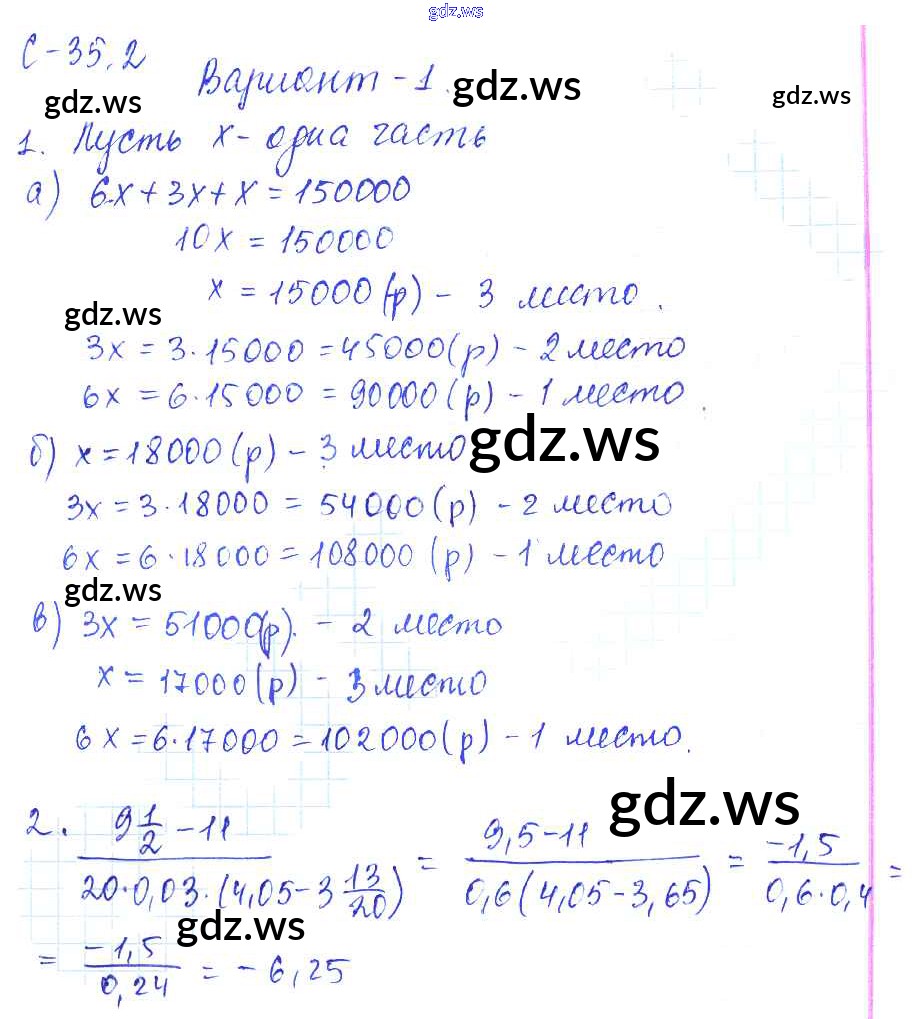 gdz.ws
С-35.2
Вариант-1.
gdz.ws gdz.ws gdz.ws
1. Пусть х- одна часть
а) 6х+3х+х=150000
10х=150000
х=15000(р)-3 место.
gdz.ws
3х=3·15000=45000(р)-2место
6х=6·15000=90000(р)-1 место.
б) х=18000(р)-3 место
gdz.ws
3х=3·18000=54000(р)-2 место
6х=6·18000=108000 (р)-1 место
gdz.ws
в) 3х=51000(р).-2 место
х=17000(р)-3 место
6х=6·17000=102000(р)-1 место.
gdz.ws
2. (9 1/2 -11)/(20·0,03·(4,05-3 13/20)) = (9,5-11)/(0,6(4,05-3,65)) = (-1,5)/(0,6·0,4) =
gdz.ws
= (-1,5)/(0,24) = -6,25